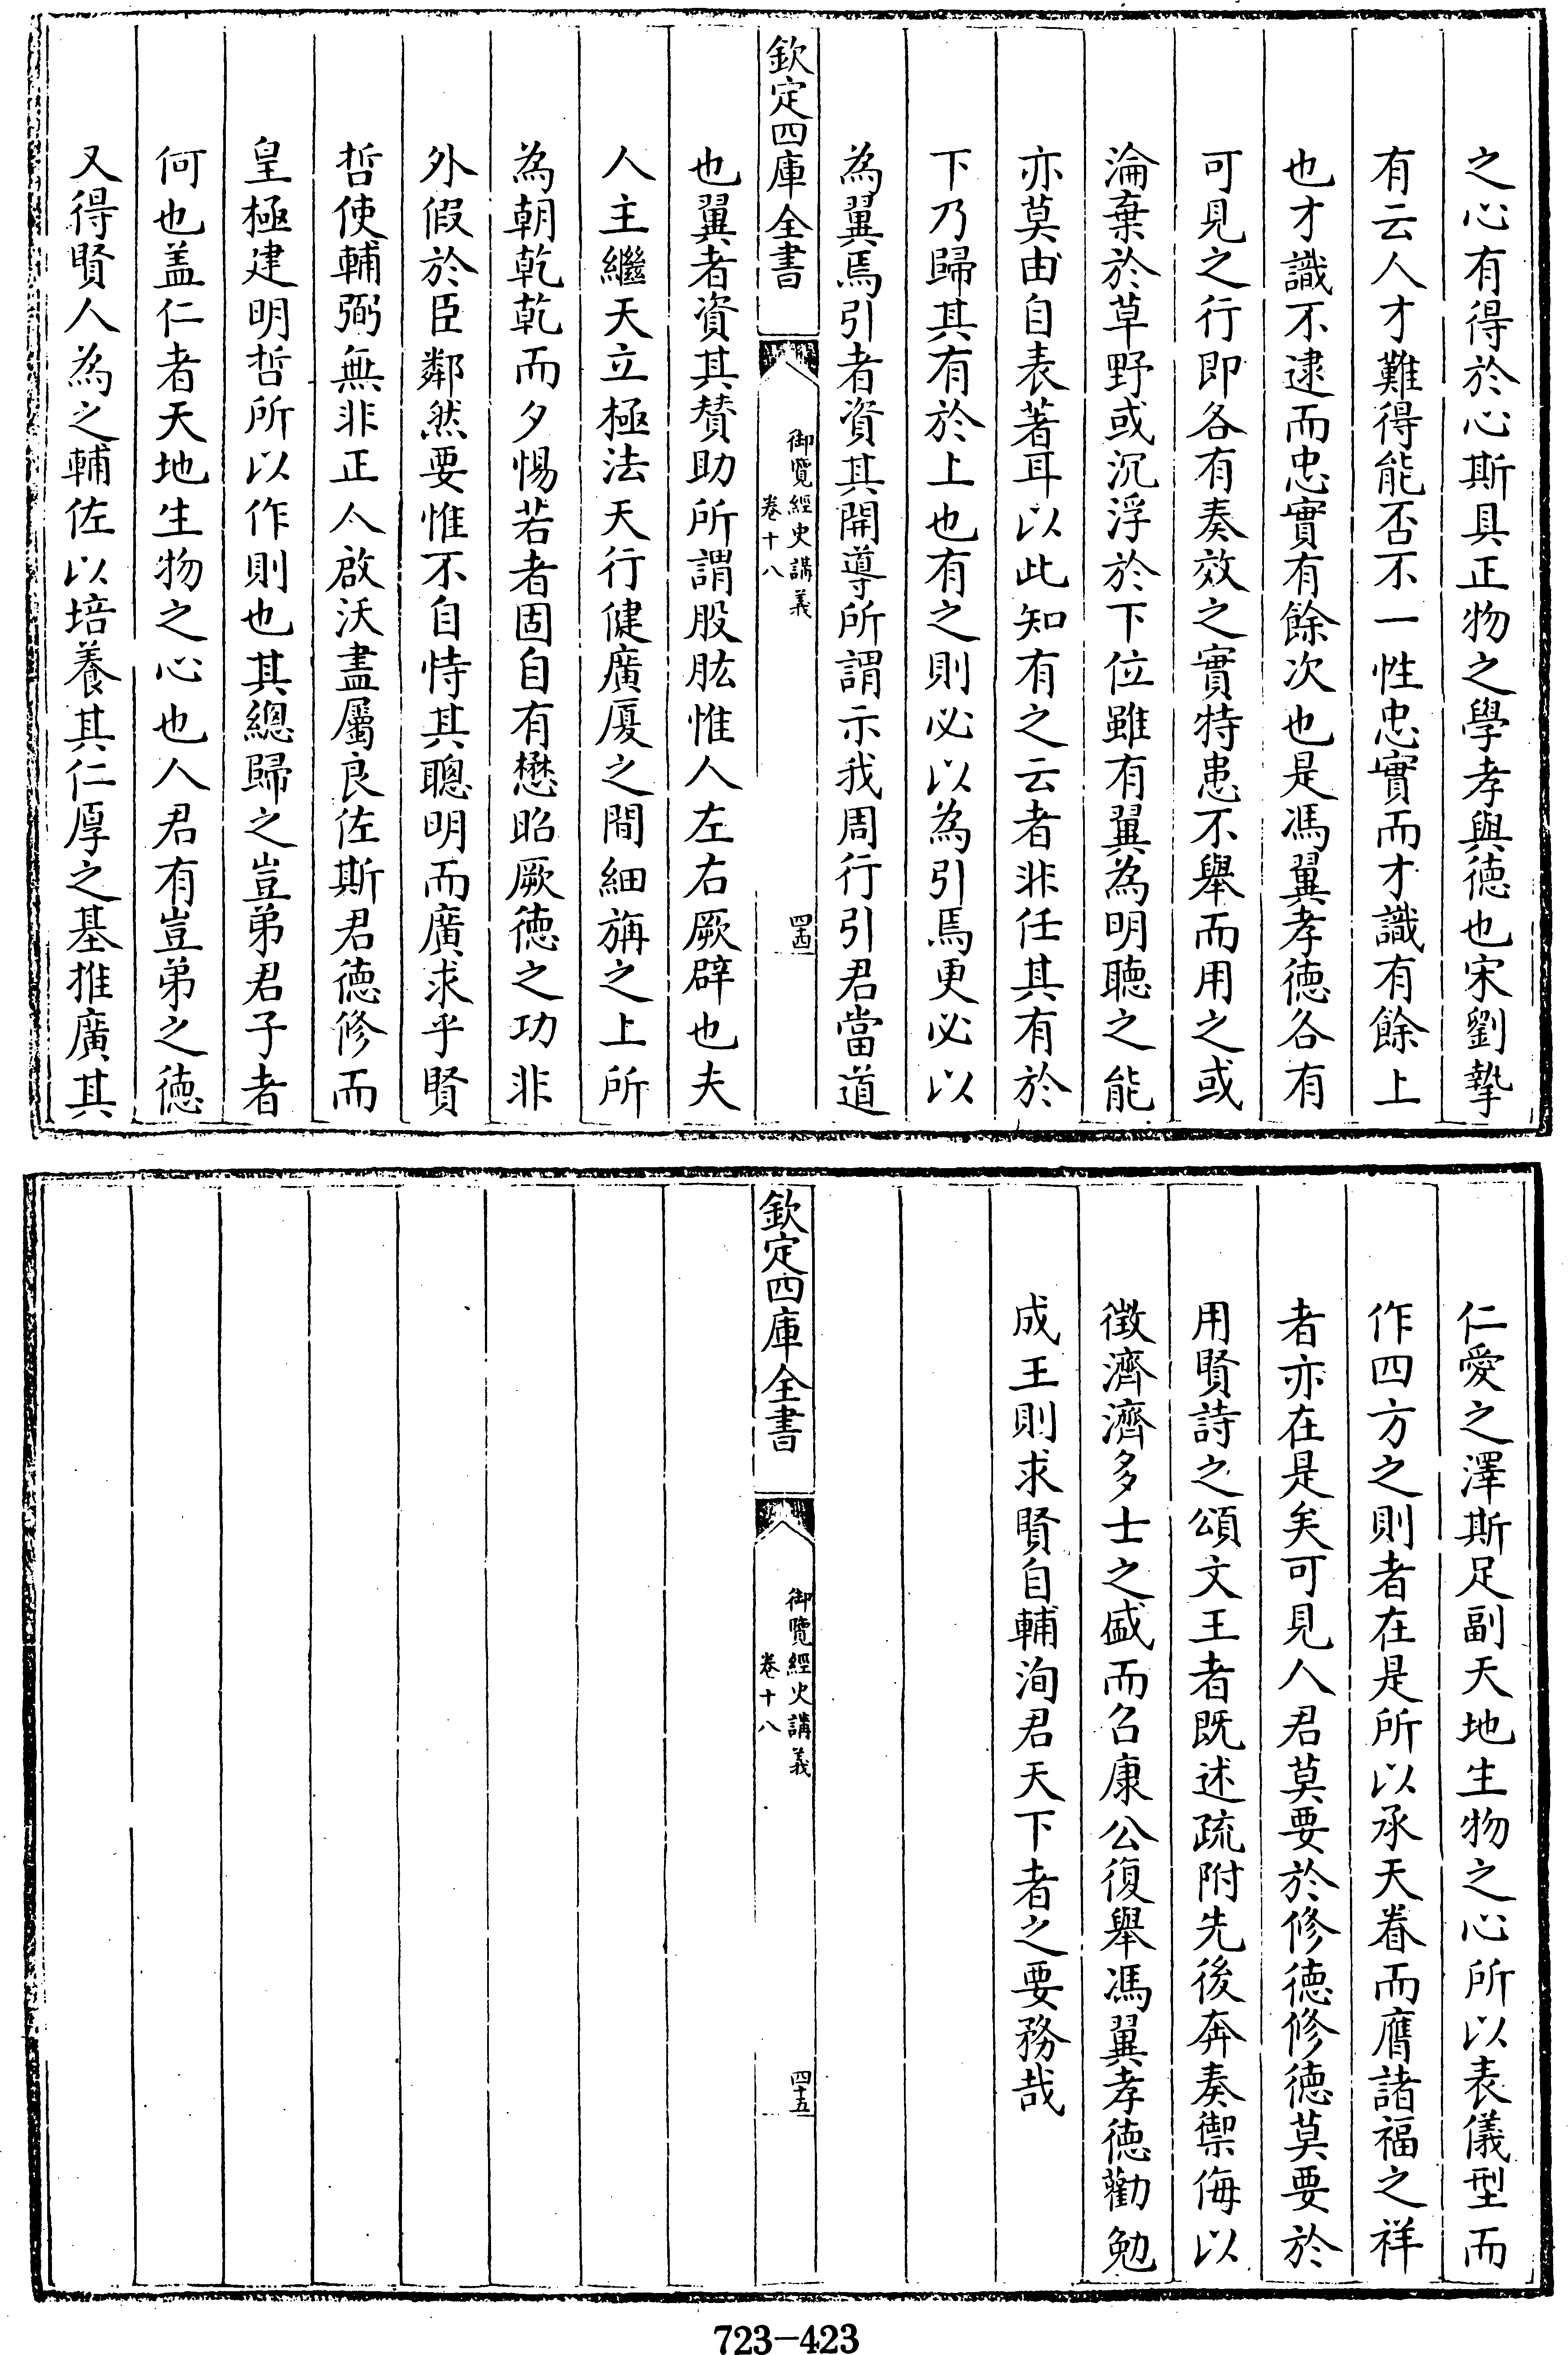 之心有得於心斯具正物之學孝與徳也宋劉摯
有云人才難得能否不一性忠實而才識有餘上
也才識不逮而忠實有餘次也是馮翼孝徳各有
可見之行即各有奏效之實特患不舉而用之或
淪棄於草野或沉浮於下位雖有翼為明聽之能
亦莫由自表著耳以此知有之云者非任其有於
下乃歸其有於上也有之則必以為引焉更必以
為翼焉引者資其開導所謂示我周行引君當道
欽定四庫全書
御覽經史講義
卷十八
四十四
也翼者資其賛助所謂股肱惟人左右厥辟也夫
人主繼天立極法天行健廣厦之間細旃之上所
為朝乾乾而夕惕若者固自有懋昭厥徳之功非
外假於臣鄰然要惟不自恃其聰明而廣求乎賢
哲使輔弼無非正人啟沃盡屬良佐斯君徳修而
皇極建明哲所以作則也其總歸之豈弟君子者
何也盖仁者天地生物之心也人君有豈弟之徳
又得賢人為之輔佐以培養其仁厚之基推廣其
仁愛之澤斯足副天地生物之心所以表儀型而
作四方之則者在是所以承天眷而膺諸福之祥
者亦在是矣可見人君莫要於修徳修徳莫要於
用賢詩之頌文王者既述疏附先後奔奏禦侮以
徴濟濟多士之盛而召康公復舉馮翼孝徳勸勉
成王則求賢自輔洵君天下者之要務哉
欽定四庫全書
御覽經史講義
卷十八
四十五
723-423